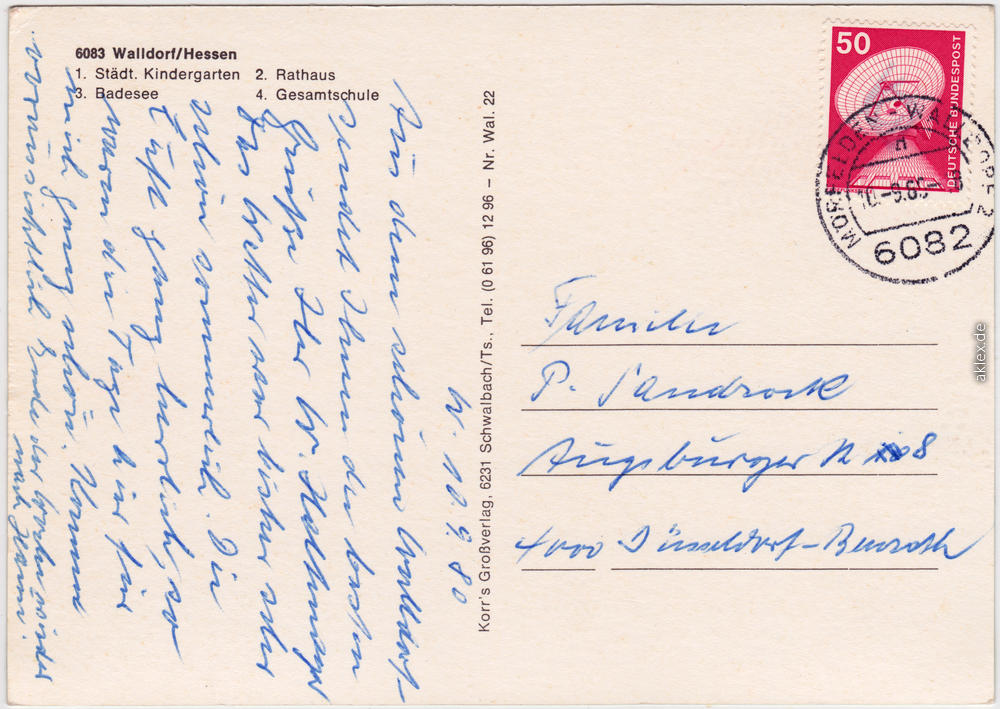 6083 Walldorf/Hessen
1. Städt. Kindergarten 2. Rathaus
3. Badesee 4. Gesamtschule
W. 10.9.80
Aus dem schönen Walldorf
sendet Ihnen die besten
Grüße Ihr
Das Wetter war bisher sehr
schön sommerlich. Die
Luft ganz herrlich, so
waren die Tage hier für
mich ganz schön. Komme
voraussichtlich Ende der Woche wieder
nach Hause.
Korr's Großverlag, 6231 Schwalbach/Ts., Tel. (0 61 96) 12 96 – Nr. Wal. 22
50
DEUTSCHE BUNDESPOST
MÖRFELDEN-WALLDORF 2
10.-9.80
6082
Familie
P. Sandrock
Augsburger 8
4000 Düsseldorf-Benrath
aklex.de